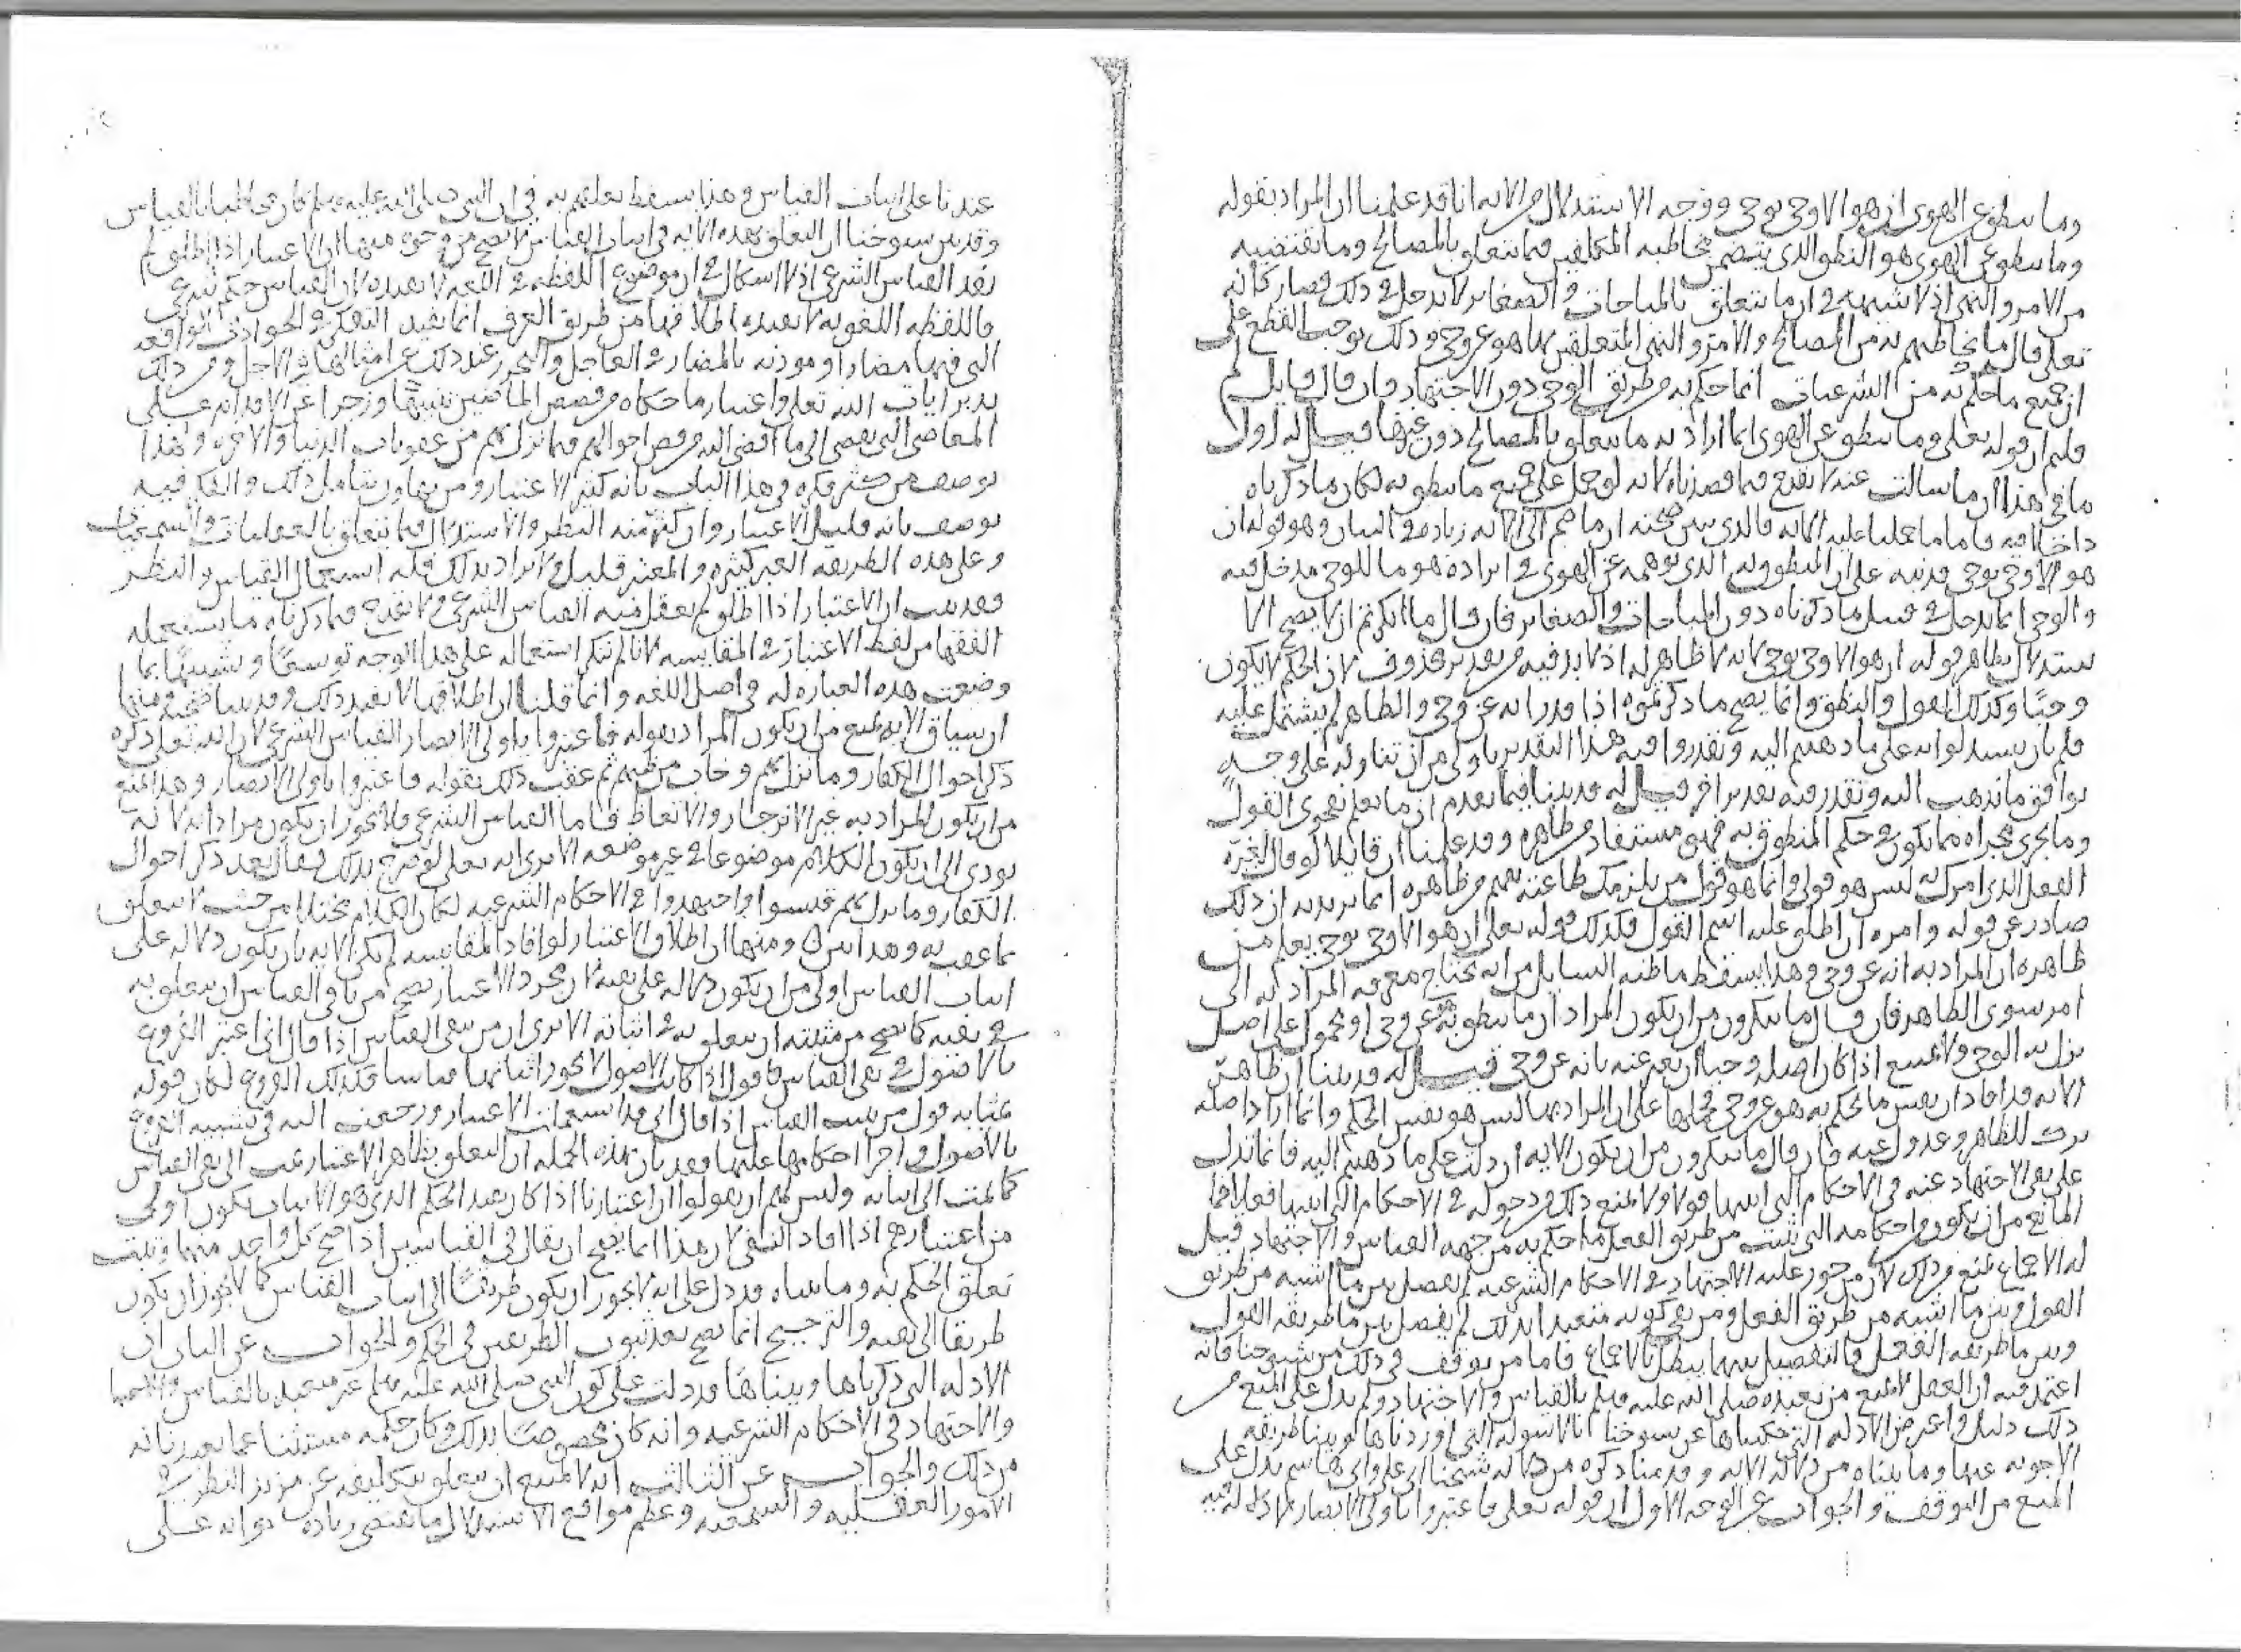 وما ينطق عن الهوى ان هو الا وحي يوحى ووجه الاستدلال من الاية انا قد علمنا ان المراد بقوله
وما ينطق عن الهوى هو النطق الذي يتضمن مخاطبة المكلفين فيما يتعلق بالمصالح وما تقتضيه
من الامر والنهي اذ لا شبهة في ان ما يتعلق بالمباحات والصغاير لا يدخل في ذلك فصار كانه
تعلى قال ما يخاطبهم به من المصالح والامر والنهي المتعلقين بها هو عن وحي وذلك يوجب القطع على
ان جميع ما حكم به من الشرعيات انما حكم به من طريق الوحي دون الاجتهاد فان قال قايل لم
قلتم ان قوله تعلى وما ينطق عن الهوى انما اراد به ما يتعلق بالمصالح دون غيرها قيل له اول
ما في هذا ان ما سالت عنه لا يقدح فيما قصدناه لانه لو حمل على جميع ما ينطق به لكان ما ذكرناه
داخلا فيه فاما ما حملنا عليه الاية فالذي يبين صحته ان ما ضم الى الاية زيادة في البيان وهو قوله ان
هو الا وحي يوحى قد نبه على ان المنطوق به الذي نوهمه عن الهوى في ايراده هو ما للوحي مدخل فيه
والوحي انما يدخل في قبيل ما ذكرناه دون المباحات والصغاير فان قال ما انكرتم ان لا يصح الا
ستدلال بظاهر قوله ان هو الا وحي يوحى لانه لا ظاهر له اذ لا بد فيه من تقدير محذوف لان الحكم لا يكون
وحيا وكذلك القول والنطق وانما يصح ما ذكرتموه اذا قدر انه عن وحي والظاهر لم يشتمل عليه
فلم بان يستدلوا به على ما ذهبتم اليه وتقدروا فيه هذا التقدير باولى من ان نتاوله على وجه
يوافق ما نذهب اليه ونقدر فيه تقديرا اخر قيل له قد بينا فيما تقدم ان ما يعلم بفحوى القول
وما يجري مجراه مما يكون في حكم المنطوق به فهو مستفاد من ظاهره وقد علمنا ان قايلا لو قال لغيره
الفعل الذي امرك به ليس هو قولي وانما هو قول من يلزمك طاعته يفهم من ظاهره انما يريد به ان ذلك
صادر عن قوله وامره ان اطلق عليه اسم القول فكذلك قوله تعلى ان هو الا وحي يوحى يعلم من
ظاهره ان المراد به انه عن وحي وهذا يسقط ما ظنه السايل من انه يحتاج معرفة المراد به الى
امر سوى الظاهر فان قال ما تنكرون من ان يكون المراد ان ما ينطق به عن وحي او محمول على اصل
نزل به الوحي ولا يمتنع اذا كان اصله وحيا ان يعبر عنه بانه عن وحي قيل له قد بينا ان ظاهر
الاية قد افاد ان نفس ما يحكم به هو عن وحي فحملها على ان المراد بها ليس هو نفس الحكم وانما اراد اصله
ترك للظاهر وعدول عنه فان قال ما تنكرون من ان يكون الاية ان دلت على ما ذهبتم اليه فانما تدل
على نفي الاجتهاد عنه في الاحكام التي اثبتها قولا ولا يمنع ذلك من دخوله في الاحكام التي اثبتها فعلا فما
المانع من ان يكون من احكامه التي تثبت من طريق الفعل ما حكم به من جهة القياس والاجتهاد قيل
له الاجماع يمنع من ذلك لان من جوز عليه الاجتهاد في الاحكام الشرعية لم يفصل بين ما اثبته من طريق
القول وبين ما اثبته من طريق الفعل ومن نفى كونه متعبدا بذلك لم يفصل بين ما طريقه القول
وبين ما طريقه الفعل فالتفصيل بينهما يبطل بالاجماع فاما من توقف في ذلك من شيوخنا فانه
اعتمد فيه ان العقل لا يمنع من تعبده صلى الله عليه وسلم بالقياس والاجتهاد ولم يدل على المنع من
ذلك دليل واعترض الادلة التي حكيناها عن شيوخنا بالاسولة التي اوردناها وبينا طريقة
الاجوبة عنها وما بيناه من دلالة الاية وقد منا ذكره من دلالة شيخنا ابي علي وابي هاشم يدل على
المنع من التوقف والجواب عن الوجه الاول ان قوله تعلى فاعتبروا ياولي الابصار لا دلالة فيه
عندنا على اثبات القياس وهذا يسقط تعلقهم به في ان النبي صلى الله عليه وسلم كان مخاطبا بالقياس
وقد بين شيوخنا ان التعلق بهذه الاية في اثبات القياس لا يصح من وجوه منها ان الاعتبار اذا اطلق لم
يفد القياس الشرعي اذ لا اشكال في ان موضوع اللفظة في اللغة لا تفيده لان القياس حكم شرعي
فاللفظة اللغوية لا تفيده اطلاقها من طريق العرف انما يفيد التفكر في الحوادث الواقعة
التي فيها مضار او موذنة بالمضار في العاجل والتحرز عند ذلك عن امثالها في الاجل ومن ذلك
تدبر ايات الله تعلى واعتبار ما حكاه من قصص الماضين تنبيها وزجرا عن الاقدام على
المعاصي التي تفضي الى ما افضى اليه من قص احوالهم فيما نزل بهم من عقوبات الدنيا والاخرة ولهذا
يوصف من كثر فكره في هذا الباب بانه كثير الاعتبار ومن تهاون بتامل ذلك والفكر فيه
يوصف بانه قليل الاعتبار وان كثر منه النظر والاستدلال فيما يتعلق بالعقليات والسمعيات
وعلى هذه الطريقة العبر كثيرة والمعتبر قليل ولا يراد بذلك قلة استعمال القياس والنظر
فقد ثبت ان الاعتبار اذا اطلق لم يعقل منه القياس الشرعي ولا يقدح فيما ذكرناه ما يستعمله
الفقها من لفظ الاعتبار في المقايسة لانا لم ننكر استعماله على هذا الوجه توسعا وتشبيها بما
وضعت هذه العبارة له في اصل اللغة وانما قلنا ان اطلاقها لا يفيد ذلك وقد بينا صحته ومنها
ان سياق الاية يمنع من ان يكون المراد بقوله فاعتبروا ياولي الابصار القياس الشرعي لان الله تعلى ذكره
ذكر احوال الكفار وما نزل بهم وخاب من ظنهم ثم عقب ذلك بقوله فاعتبروا ياولي الابصار وهذا يمنع
من ان يكون المراد به غير الانزجار والاتعاظ فاما القياس الشرعي فلا يجوز ان يكون مرادا به لانه
يودي الى ان يكون الكلام موضوعا في غير موضعه الا ترى انه تعلى لو صرح بذلك فقال بعد ذكر احوال
الكفار وما نزل بهم قيسوا واجتهدوا في الاحكام الشرعية لكان الكلام مختلا من حيث لا يتعلق
بما عقب به وهذا بين ومنها ان اطلاق الاعتبار لو افاد المقايسة لم تكن الاية بان يكون دلالة على
اثبات القياس اولى من ان يكون دلالة على نفيه لان مجرد الاعتبار يصح من نافي القياس ان يتعلق به
في نفيه كما يصح من مثبته ان يتعلق به في اثباته الا ترى ان من نفى القياس اذا قال اني اعتبر الفروع
بالاصول في نفي القياس فاقول اذا كانت الاصول لا يجوز اثباتها قياسا فكذلك الفروع لكان قوله
بمثابة قول من يثبت القياس اذا قال اني قد استعملت الاعتبار ورجعت اليه في تشبيه الفروع
بالاصول واجرا احكامها عليها فقد بان بهذه الجملة ان التعلق بظاهر الاعتبار يجب الى نفي القياس
كما يجب الى اثباته وليس لهم ان يقولوا ان اعتبارنا اذا كان يفيد الحكم الذي هو الاثبات يكون اولى
من اعتبارهم اذا افاد النفي لان هذا انما يصح ان يقال في القياسين اذا صح كل واحد منهما وثبت
تعلق الحكم به وما بيناه قد دل على انه لا يجوز ان يكون طريقا الى اثبات القياس كما لا يجوز ان يكون
طريقا الى نفيه والترجيح انما يصح بعد ثبوت الطريقين في الحكم والجواب عن الثاني ان
الادلة التي ذكرناها وبيناها قد دلت على كون النبي صلى الله عليه وسلم غير متعبد بالقياس
والاجتهاد في الاحكام الشرعية وانه كان مخصوصا بذلك وكان حكمه مستثنا عما تعبدنا به
من ذلك والجواب عن الثالث انه لا يمتنع ان يتعلق بتكليفه عن مزيد النظر في
الامور العقلية والسمعية وعظم مواقع الاستدلال ما يقتضي زيادة ثوابه على